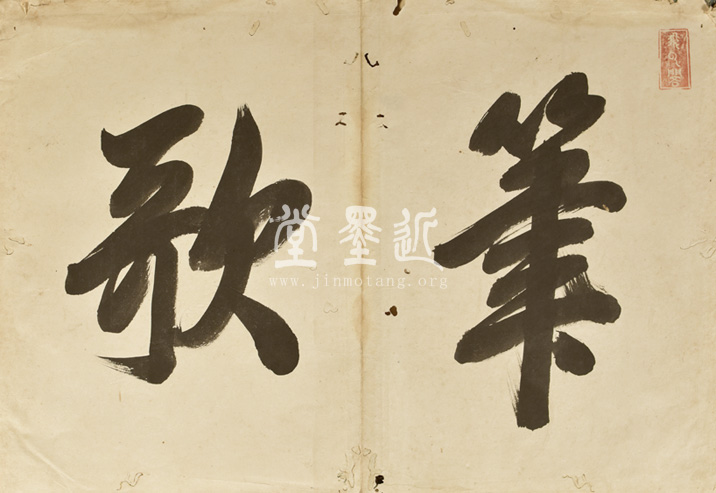 筆歌
近墨堂
www.jinmotang.org